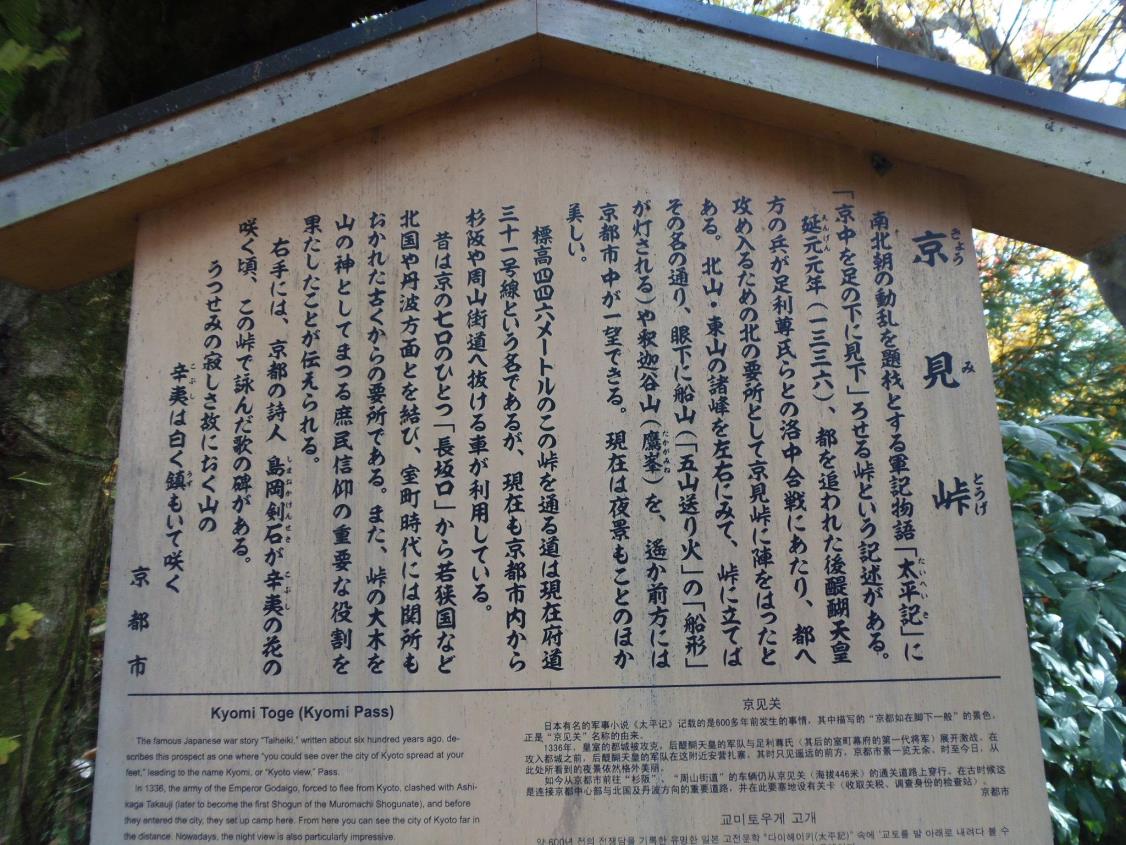 京見峠
きょう み とうげ
南北朝の動乱を題材とする軍記物語「太平記」に
たいへいき
「京中を足の下に見下」ろせる峠という記述がある。
延元元年(一三三六)、都を追われた後醍醐天皇
えんげん
方の兵が足利尊氏らとの洛中合戦にあたり、都へ
攻め入るための北の要所として京見峠に陣をはったと
ある。北山・東山の諸峰を左右にみて、峠に立てば
その名の通り、眼下に船山(「五山送り火」の「船形」
が灯される)や釈迦谷山(鷹峯)を、遙か前方には
たかがみね
京都市中が一望できる。現在は夜景もことのほか
美しい。
標高四四六メートルのこの峠を通る道は現在府道
三十一号線という名であるが、現在も京都市内から
杉阪や周山街道へ抜ける車が利用している。
昔は京の七口のひとつ「長坂口」から若狭国など
北国や丹波方面とを結び、室町時代には関所も
おかれた古くからの要所である。また、峠の大木を
山の神としてまつる庶民信仰の重要な役割を
果たしたことが伝えられる。
右手には、京都の詩人 島岡剣石が辛夷の花の
しまおかけんせき こぶし
咲く頃、この峠で詠んだ歌の碑がある。
うつせみの寂しさ故におく山の
辛夷は白く鎮もいて咲く
こぶし うず
京都市
Kyomi Toge (Kyomi Pass)
The famous Japanese war story "Taiheiki," written about six hundred years ago, de-
scribes this prospect as one where "you could see over the city of Kyoto spread at your
feet," leading to the name Kyomi, or "Kyoto view," Pass.
In 1336, the army of the Emperor Godaigo, forced to flee from Kyoto, clashed with Ashi-
kaga Takauji (later to become the first Shogun of the Muromachi Shogunate), and before
they entered the city, they set up camp here. From here you can see the city of Kyoto far in
the distance. Nowadays, the night view is also particularly impressive.
京见关
日本有名的军事小说《太平记》记载的是600多年前发生的事情，其中描写的“京都如在脚下一般”的景色，
正是“京见关”名称的由来。
1336年，皇室的都城被攻克，后醍醐天皇的军队与足利尊氏（其后的室町幕府的第一代将军）展开激战。在
攻入都城之前，后醍醐天皇的军队在这附近安营扎寨，其时只见遥远的前方，京都市景一览无余。时至今日，从
此处所看到的夜景依然格外美丽。
如今从京都市前往“杉阪”、“周山街道”的车辆仍从京见关（海拔446米）的通关道路上穿行。在古时候这
是连接京都中心部与北国及丹波方向的重要道路，并在此要塞地设有关卡（收取关税、调查身份的检查站）。
京都市
교미토우게 고개
약 600년 전의 전쟁담을 기록한 유명한 일본 고전문학 "다이헤이키(太平記)" 속에 '교토를 발 아래로 내려다 볼 수